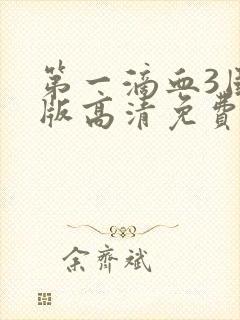 第一滴血3
版高清免费
余齐斌